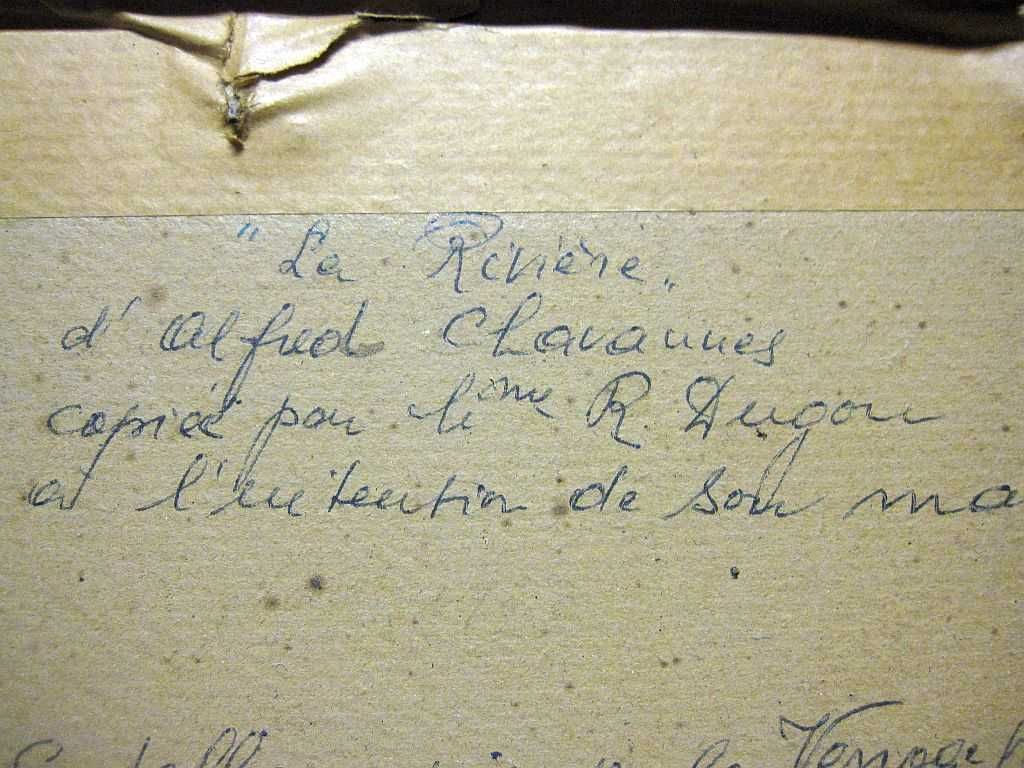 "La Rivière"
d'Alfred Chavannes
copiée par R. Dugon
à l'intention de son ma